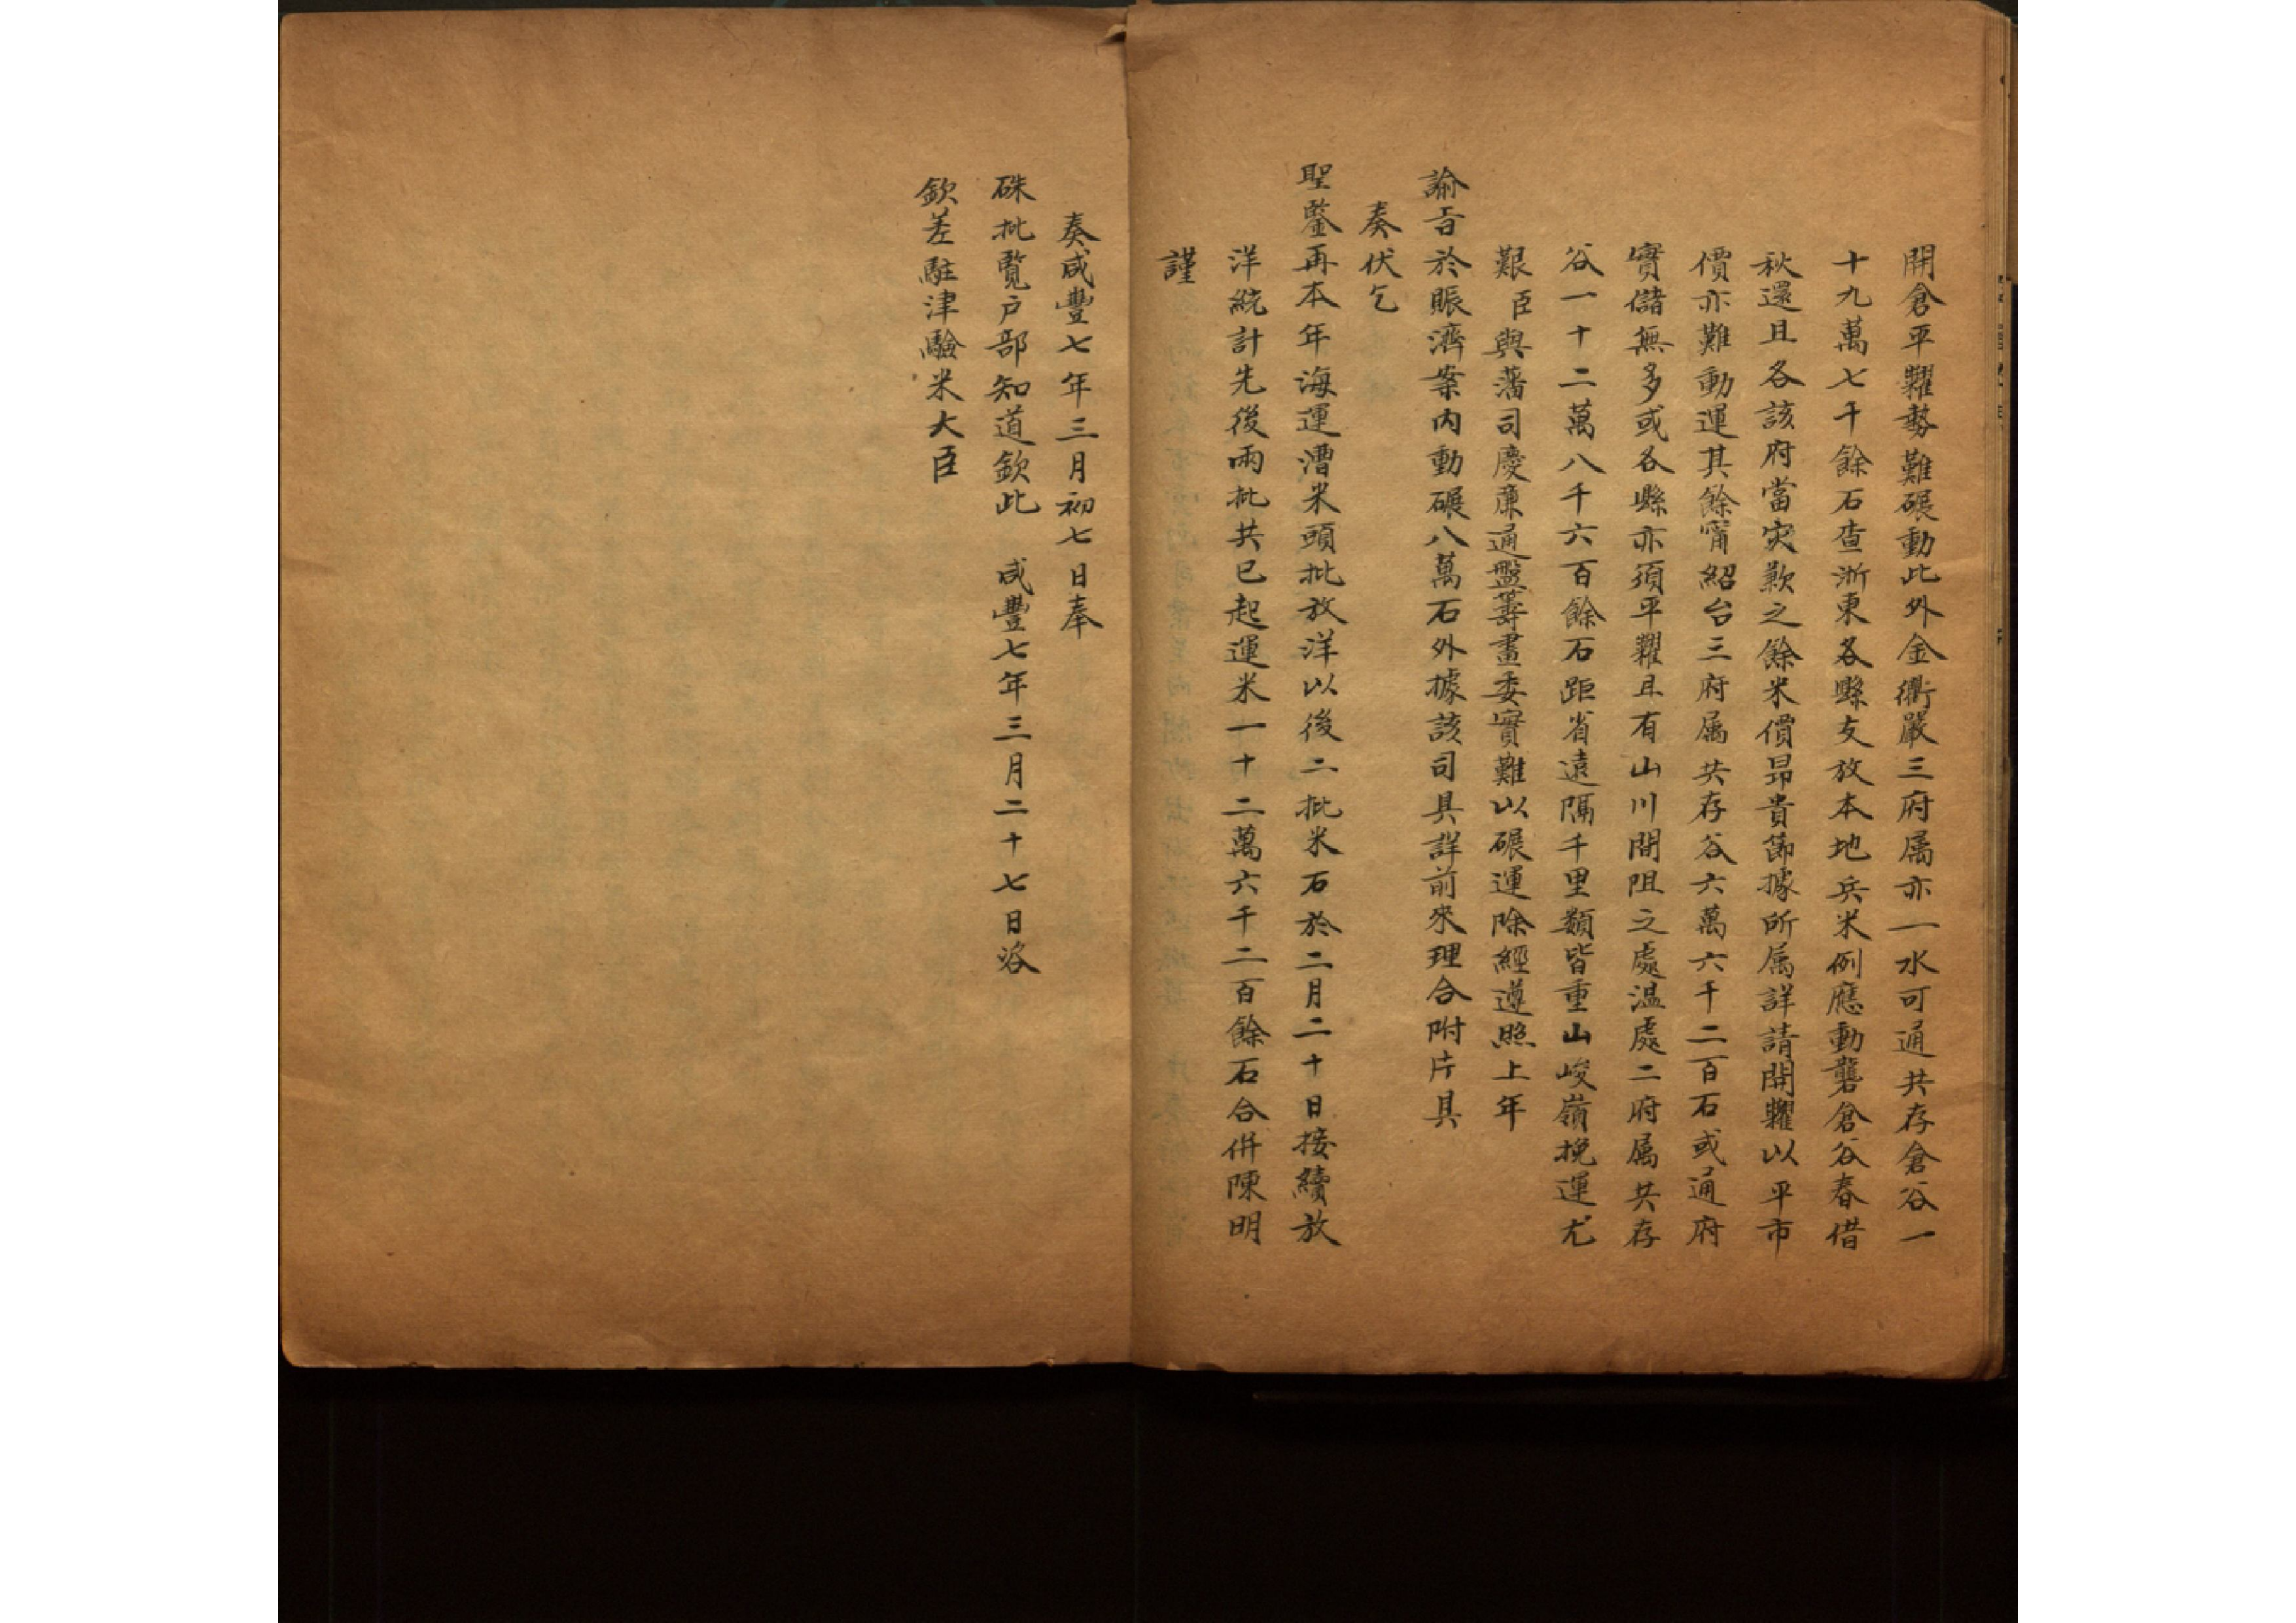 開倉平糶勢難碾動此外金衢嚴三府属亦一水可通共存倉谷一
十九萬七千餘石查浙東各縣支放本地兵米例應動礱倉谷春借
秋還且各該府當灾歉之餘米價昂貴節據所属詳請開糶以平市
價亦難動運其餘甯紹台三府属共存谷六萬六千二百石或通府
實儲無多或各縣亦須平糶且有山川間阻之處温處二府属共存
谷一十二萬八千六百餘石距省遠隔千里類皆重山峻嶺挽運尤
艱臣與藩司慶廉通盤籌畫委實難以碾運除經遵照上年
諭旨於賑濟案内動碾八萬石外據該司具詳前來理合附片具
奏伏乞
聖鑒再本年海運漕米頭批放洋以後二批米石於二月二十日接續放
洋統計先後兩批共已起運米一十二萬六千二百餘石合併陳明
謹
奏咸豐七年三月初七日奉
硃批覽户部知道欽此 咸豐七年三月二十七日咨
欽差駐津驗米大臣